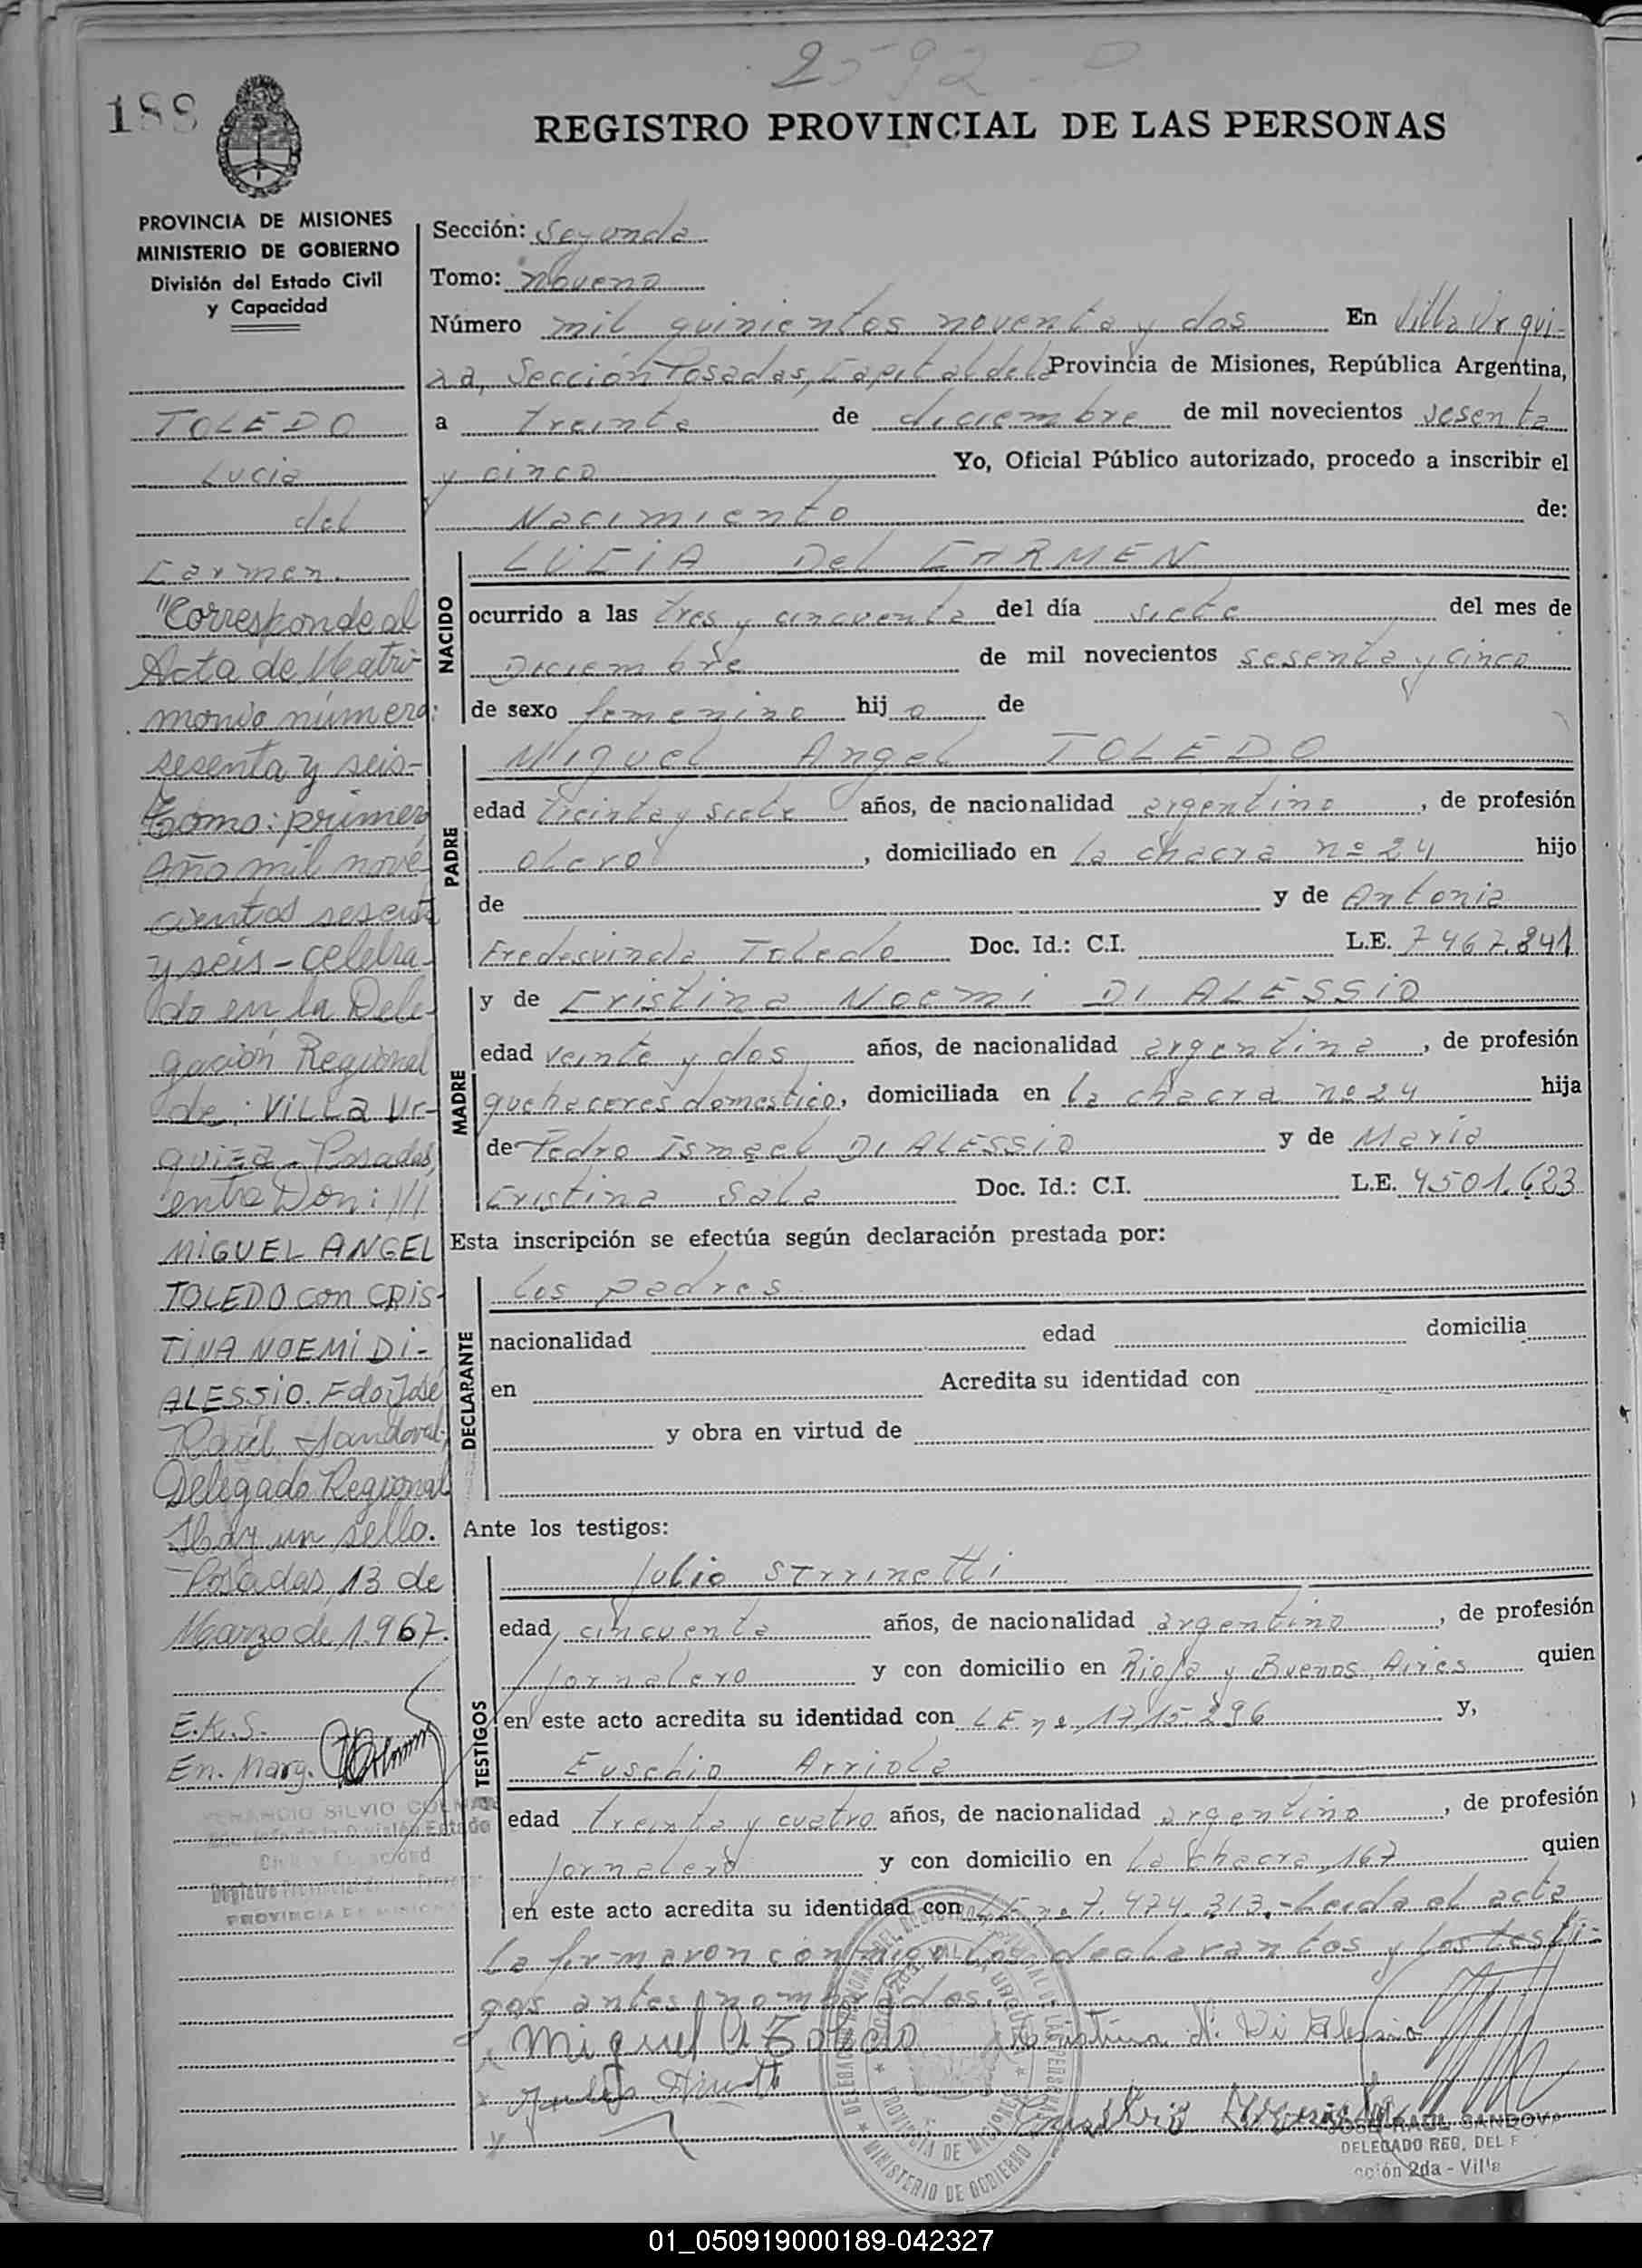 188
REGISTRO PROVINCIAL DE LAS PERSONAS
PROVINCIA DE MISIONES
MINISTERIO DE GOBIERNO
División del Estado Civil
y Capacidad
TOLEDO
Lucia
del
Carmen.
"Corresponde al
Acta de Matri-
monio número:
sesenta y seis-
Tomo: primero
Año mil nove-
cientos sesenta
y seis - celebra-
do en la Dele-
gación Regional
de: VILLA Ur-
quiza - Posadas,
entre Don: ///
MIGUEL ANGEL
TOLEDO con CRIS-
TINA NOEMI DI-
ALESSIO. Fdo: José
Raúl Sandoval,
Delegado Regional
Hay un sello.
Posadas, 13 de
Marzo de 1.967.
E.K.S.
En. Marg.
SILVIO
Sección: Segunda
Tomo: noveno
Número mil quinientos noventa y dos En Villa Urqui-
za, Sección Posadas, Capital de la Provincia de Misiones, República Argentina,
a treinta de diciembre de mil novecientos sesenta
y cinco Yo, Oficial Público autorizado, procedo a inscribir el
Nacimiento de:
NACIDO
LUCIA Del CARMEN
ocurrido a las tres y cincuenta del día siete del mes de
Diciembre de mil novecientos sesenta y cinco
de sexo femenino hij a de
PADRE
Miguel Angel TOLEDO
edad treinta y siete años, de nacionalidad argentino, de profesión
obrero, domiciliado en la chacra nº 24 hijo
de y de Antonia
Fredesvinda Toledo Doc. Id.: C.I. L.E. 7467.841
MADRE
y de Cristina Noemi DI ALESSIO
edad veinte y dos años, de nacionalidad argentina, de profesión
quehaceres domestico, domiciliada en la chacra nº 24 hija
de Pedro Ismael DI ALESSIO y de Maria
Cristina Sala Doc. Id.: C.I. L.E. 4501.623
Esta inscripción se efectúa según declaración prestada por:
DECLARANTE
los padres
nacionalidad edad domicilia
en Acredita su identidad con
y obra en virtud de
Ante los testigos:
TESTIGOS
Julio
edad cincuenta años, de nacionalidad argentino, de profesión
Jornalero y con domicilio en Rioja y Buenos Aires quien
en este acto acredita su identidad con L E nº 1715.296 y,
Eusebio Arriola
edad treinta y cuatro años, de nacionalidad argentino, de profesión
Jornalero y con domicilio en la chacra 167 quien
en este acto acredita su identidad con LE nº 7.474.313.- Leida el acta
la firmaron conmigo los declarantes y los testi-
gos antes nombrados.
Miguel A Toledo Cristina N. Di Alessio
JOSE RAUL SANDOV
DELEGADO REG. DEL
ción 2da - Villa
MINISTERIO DE GOBIERNO
PROVINCIA DE MISIONES
01_050919000189-042327